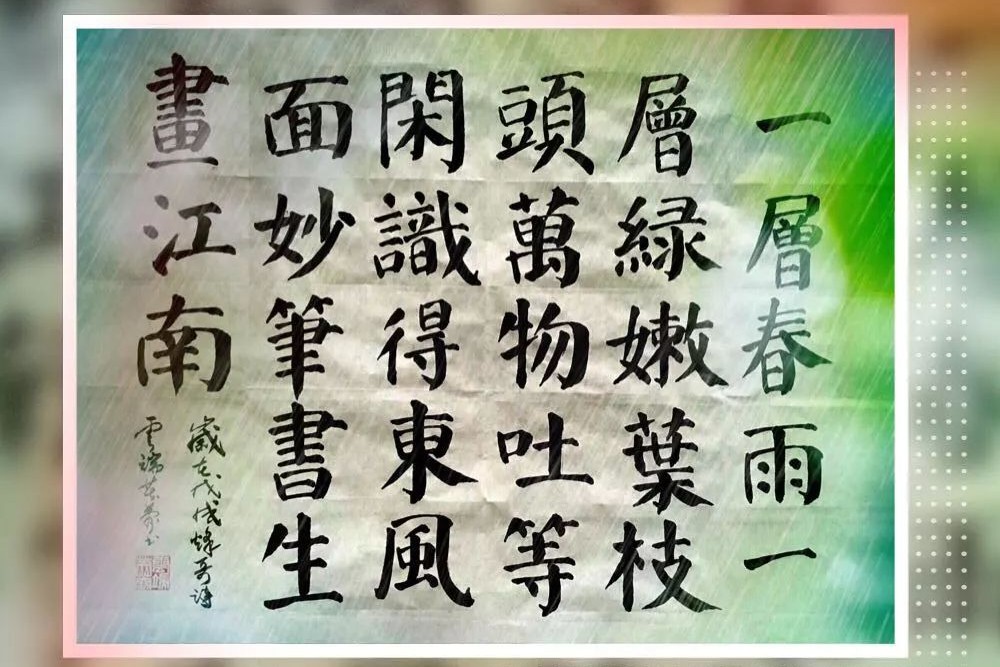 一層春雨一
層緑嫩葉枝
頭萬物吐等
閑識得東風
面妙筆書生
畫江南
歲在戊戌 哥詩
雲端